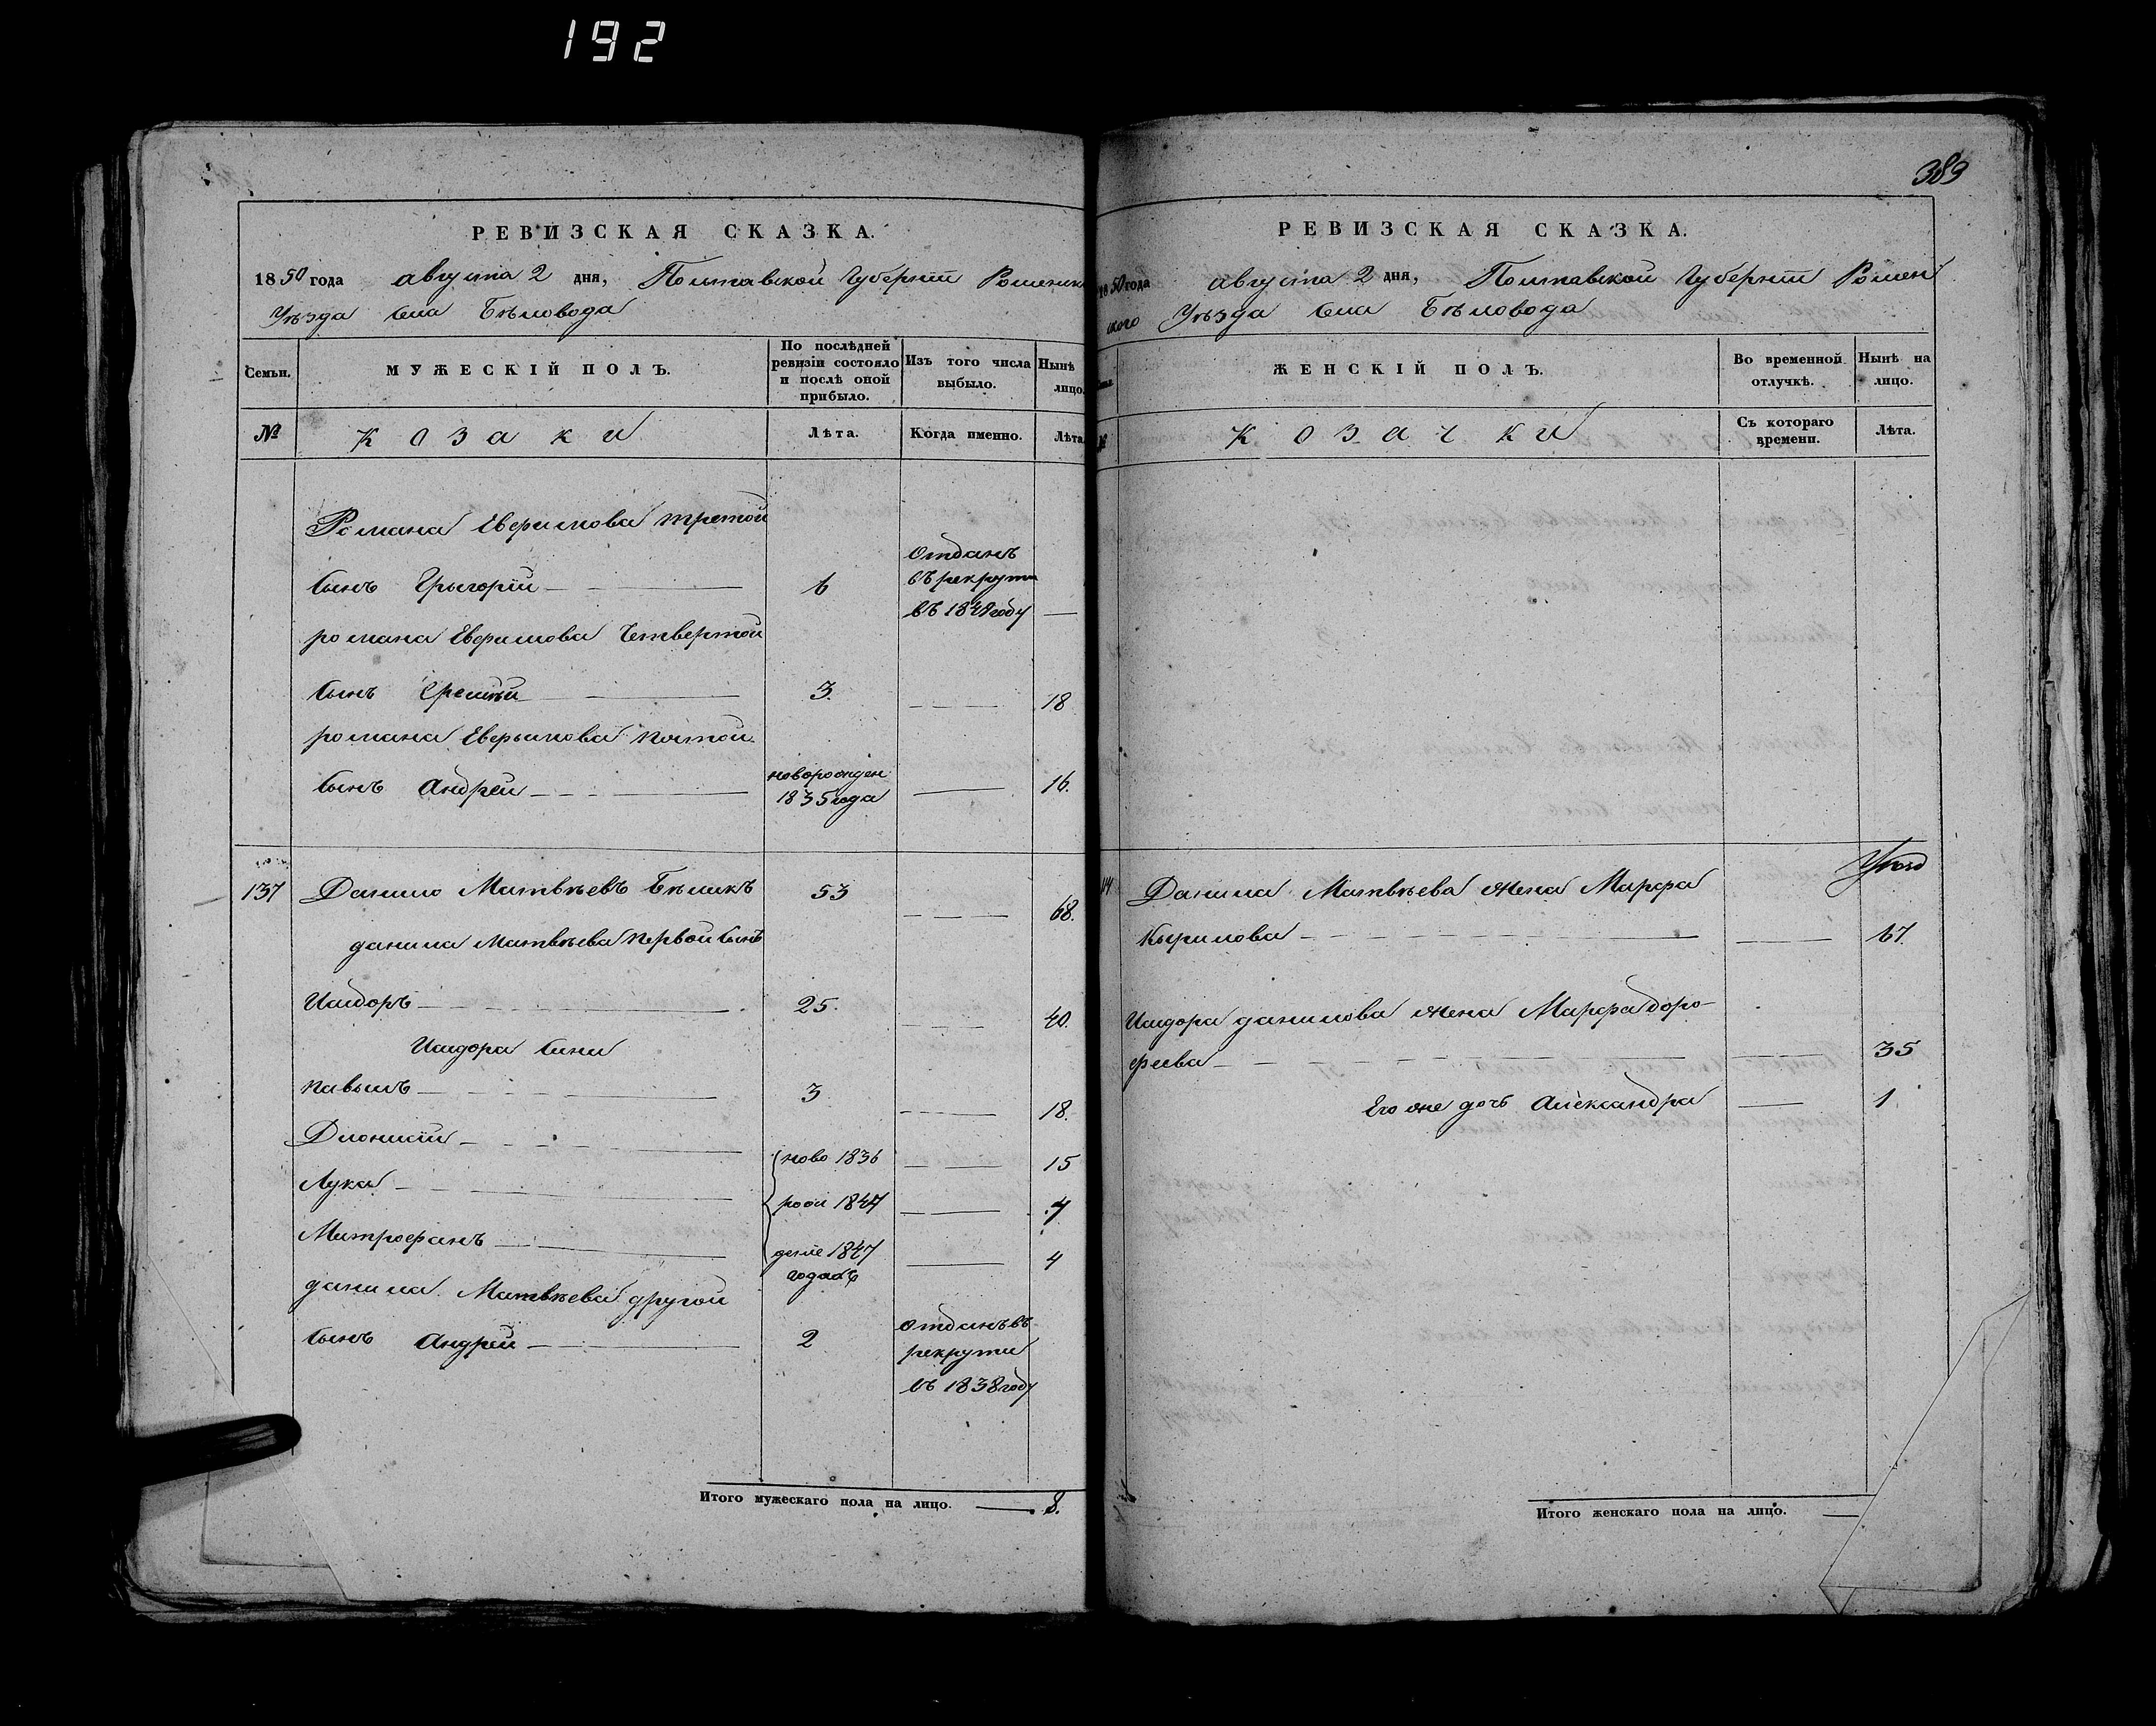 192
РЕВИЗСКАЯ СКАЗКА.
1850 года августа 2 дня, Полтавской Губерніи Роменск
Уѣзда села Бѣловода
Семьи.
МУЖЕСКІЙ ПОЛЪ.
По послѣдней ревизіи состояло и послѣ оной прибыло.
Изъ того числа выбыло.
Нынѣ лицо.
№
Козаки
Лѣта.
Когда именно.
Лѣта
Романа Евфимова третой
сынъ Григорій 6 отданъ
въ рекруты
въ 1848 году
романа Евфимова Четвертой
сынъ 3. 18
романа Евфимова пятой
сынъ Андрей новорожден 16.
1835 года
137 Данило Матвѣевъ Бѣликъ 53 68.
данила Матвѣева первой сынъ
Исидоръ 25. 40.
Исидора сыни
Павылъ 3 18.
Дионисій ново 1836 15
Лука рож 1844 7
Митрофанъ дение 1847 4
годахъ
данила Матвѣева другой
сынъ Андрей 2 отданъ въ
рекруты
въ 1838 году
Итого мужескаго пола на лицо. 8.
383
РЕВИЗСКАЯ СКАЗКА.
1850 года августа 2 дня, Полтавской Губерніи Ромен
ского Уѣзда села Бѣловода
ЖЕНСКІЙ ПОЛЪ.
Во временной отлучкѣ.
Нынѣ на лицо.
№
Козачки
Съ котораго времени.
Лѣта.
Данила Матвѣева жена Марфа
Кырилова 67.
Исидора данилова жена Марфа доро-
феева 35
Его же дочь Александра 1
Итого женскаго пола на лицо.